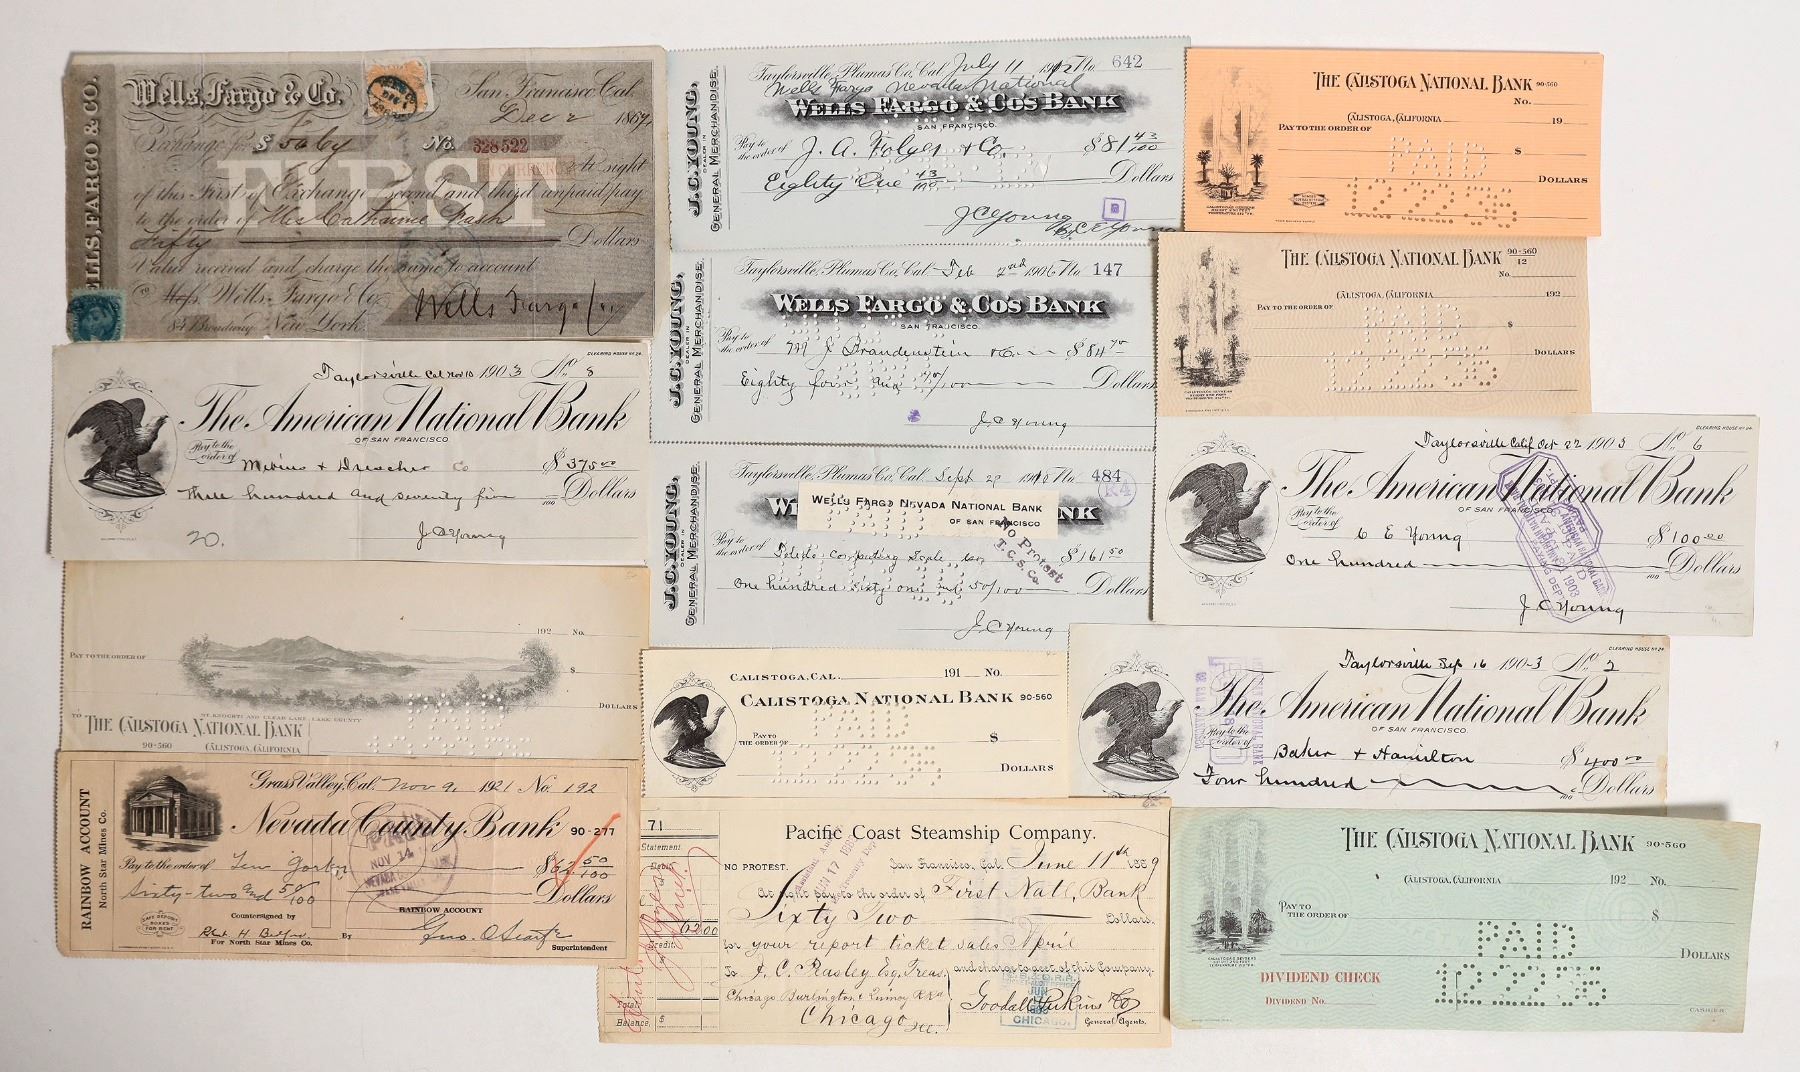 WELLS, FARGO & CO.
Wells, Fargo & Co.
San Francisco Cal.
Dec 2 1867
Exchange for $ No. 328522
FIRST
At sight
of this First of Exchange (second and third unpaid) pay
to the order of Mrs Catharine Nash
Fifty Dollars
Value received and charge the same to account
To Mess. Wells, Fargo & Co.
84 Broadway New York
Wells Fargo & Co
J. C. YOUNG,
DEALER IN
GENERAL MERCHANDISE.
Taylorsville, Plumas Co, Cal. July 11 1912 No. 642
Wells Fargo Nevada National
WELLS FARGO & CO'S BANK
SAN FRANCISCO.
Pay to
the order of J. A. Folger & Co. $81 43/100
Eighty One 43/100 Dollars
J C Young
By C E Young
THE CALISTOGA NATIONAL BANK 90-560
No.
CALISTOGA, CALIFORNIA 19
PAY TO THE ORDER OF
$
DOLLARS
PAID
12 22 36
J. C. YOUNG,
DEALER IN
GENERAL MERCHANDISE.
Taylorsville, Plumas Co, Cal. Feb 2nd 1906 No. 147
WELLS FARGO & CO'S BANK
SAN FRANCISCO.
Pay to
the order of M J Brandenstein & Co $84 70
Eighty four and 70/100 Dollars
J C Young
THE CALISTOGA NATIONAL BANK 90-560
12
No.
CALISTOGA, CALIFORNIA 192
PAY TO THE ORDER OF
$
DOLLARS
PAID
12 22 36
CLEARING HOUSE No 24.
Taylorsville Cal Nov 10 1903 No 8
The American National Bank
OF SAN FRANCISCO.
Pay to the
order of Mebius & Drescher Co $375 00
Three hundred and seventy five 100 Dollars
J C Young
20.
J. C. YOUNG,
DEALER IN
GENERAL MERCHANDISE.
Taylorsville, Plumas Co, Cal. Sept 29 1910 No. 484
K4
WELLS FARGO NEVADA NATIONAL BANK
OF SAN FRANCISCO
NK
Pay to
the order of Toledo Computing Scale Co $161 50
One hundred Sixty one and 50/100 Dollars
No Protest
T. C. S. Co.
J C Young
CLEARING HOUSE No 24.
Taylorsville Calif Oct 22 1903 No 6
The American National Bank
OF SAN FRANCISCO.
Pay to the
order of C E Young $100 00
One hundred 100 Dollars
J C Young
192 No.
PAY TO THE ORDER OF
$
DOLLARS
MT. KNOCHTI AND CLEAR LAKE - LAKE COUNTY
TO THE CALISTOGA NATIONAL BANK
90-560 CALISTOGA, CALIFORNIA
CALISTOGA, CAL. 191 No.
CALISTOGA NATIONAL BANK 90-560
PAY TO
THE ORDER OF
$
DOLLARS
PAID
12 22 36
CLEARING HOUSE No 24.
Taylorsville Sep 16 1903 No 2
The American National Bank
OF SAN FRANCISCO.
Pay to the
order of Baker & Hamilton $400 00
Four hundred 100 Dollars
RAINBOW ACCOUNT
North Star Mines Co.
Grass Valley, Cal. Nov 9, 1921 No. 192
Nevada County Bank 90-277
Pay to the order of $62 50/100
Sixty-two and 50/100 Dollars
PAID
NOV 14
RAINBOW ACCOUNT
SAFE DEPOSIT
BOXES
FOR RENT
Countersigned by
For North Star Mines Co.
By
Superintendent
71
Statement
Debit
Credit. 62.00
Total
Balance, $
Pacific Coast Steamship Company.
NO PROTEST. San Francisco, Cal. June 11th 1889
At sight pay to the order of First Natl. Bank
Sixty Two Dollars
for your report ticket sales April
To J. C. Peasley Esq Treas. and charge to acct of this Company
Chicago Burlington & Quincy RR
Chicago Ill.
Goodall Perkins & Co
General Agents.
CHICAGO.
THE CALISTOGA NATIONAL BANK 90-560
CALISTOGA, CALIFORNIA 192 No.
PAY TO
THE ORDER OF
$
DOLLARS
PAID
12 22 36
CALISTOGA GEYSERS
DIVIDEND CHECK
DIVIDEND No.
CASHIER